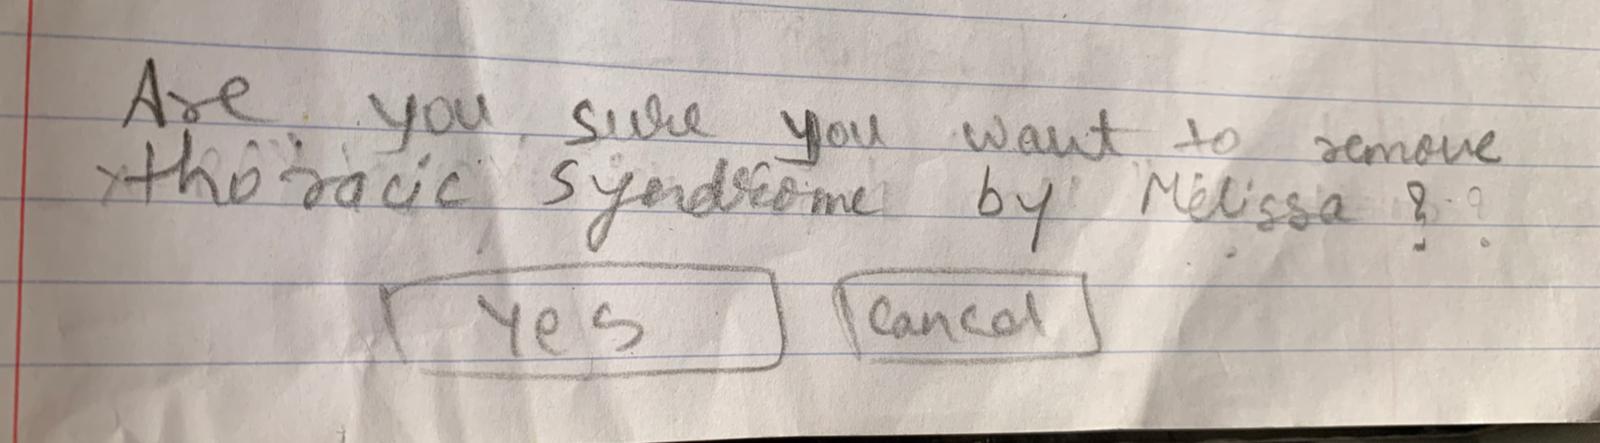 Are you sure you want to remove
thoracic syndrome by Melissa ??
Yes Cancel